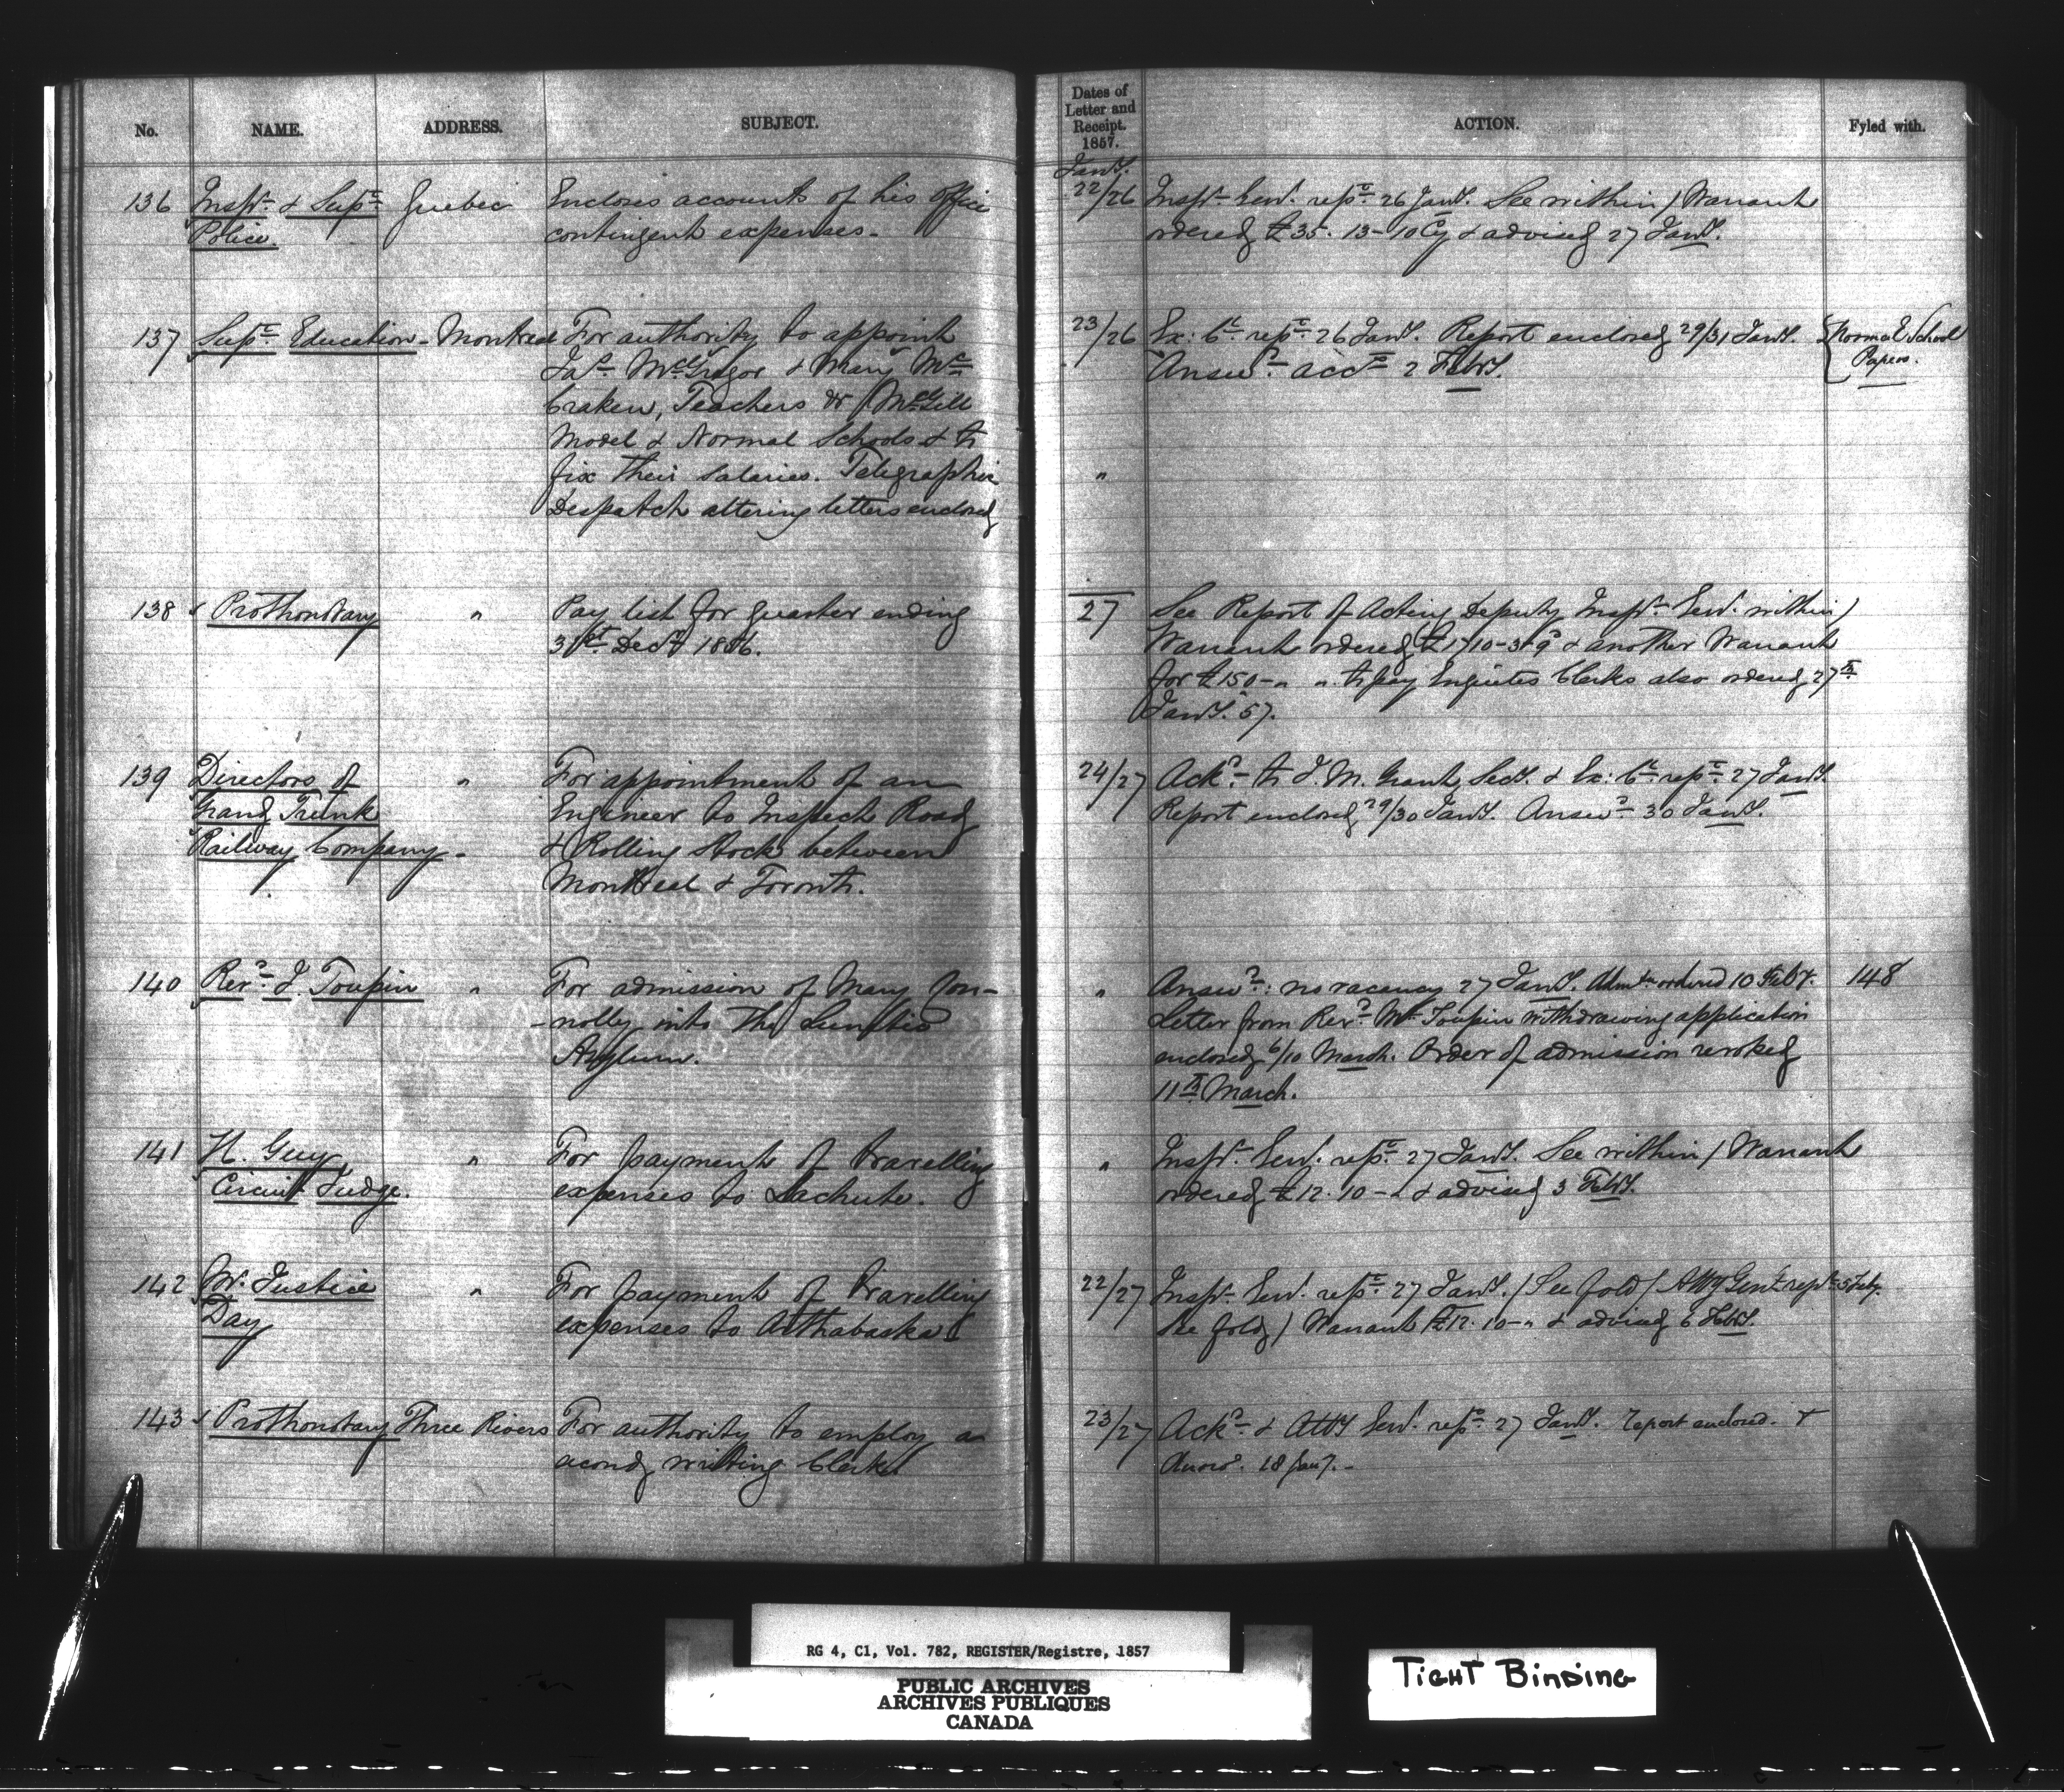 No. NAME. ADDRESS. SUBJECT.
136 Inspr. & Supt. Quebec Encloses accounts of his Office
Police. contingent expenses.
137 Supt. Education - Montreal For authority to appoint
Jas. McGregor & Mary Mc
Craken, Teachers to McGill
Model & Normal Schools & to
fix their salaries. Telegraphic
Despatch altering letters enclosed
138 Prothonotary " Pay list for quarter ending
31st Decr. 1856.
139 Directors of " For appointment of an
Grand Trunk Engineer to Inspect Road
Railway Company - & Rolling Stock between
Montreal & Toronto.
140 Revd. J. Toupin " For admission of Mary Con-
-nolly into The Lunatic
Asylum.
141 H. Guy " For payment of travelling
Circuit Judge. expenses to Lachute.
142 Mr. Justice " For payment of travelling
Day expenses to Arthabaska
143 Prothonotary Three Rivers For authority to employ a
second writing Clerk
Dates of
Letter and
Receipt.
1857.
ACTION. Fyled with.
Jany.
22/26 Inspr. Genl. repe. 26 Jany. See within / Warrant
ordered £35. 13-10 Cy & advised 27 Jany.
23/26 Ex: Cl. repe. 26 Jany. Report enclosed 29/31 Jany. Normal School
Answd. accd. 2 Feby. Papers.
"
27 See Report of Acting Deputy Inspr. Genl. within /
Warrant ordered & another Warrant
for £150-" " to pay Enquetes Clerks also ordered 27th
Jany. 57.
24/27 Ackd. to J. M. Grant, Secy. & Ex: Cl. repe. 27 Jany.
Report enclosed 29/30 Jany. Answd. 30 Jany.
" Answd.: no vacancy 27 Jany. Admtn. ordered 10 Feby. 148
Letter from Revd. Mr. Toupin withdrawing application
enclosed 6/10 March. Order of admission revoked
11th March.
" Inspr. Genl. repe. 27 Jany. See within / Warrant
ordered £12. 10-" & advised 3 Feby.
22/27 Inspr. Genl. repe. 27 Jany. / See fold / Atty Genl. repe. 5 Feby.
See fold / Warrant £12. 10-" & advised 6 Feby.
23/27 Ackd. & Atty Genl. repe. 27 Jany. Report enclosed. &
Answd. 28 Jany. -
RG 4, C1, Vol. 782, REGISTER/Registre, 1857
PUBLIC ARCHIVES
ARCHIVES PUBLIQUES
CANADA
TIGHT BINDING